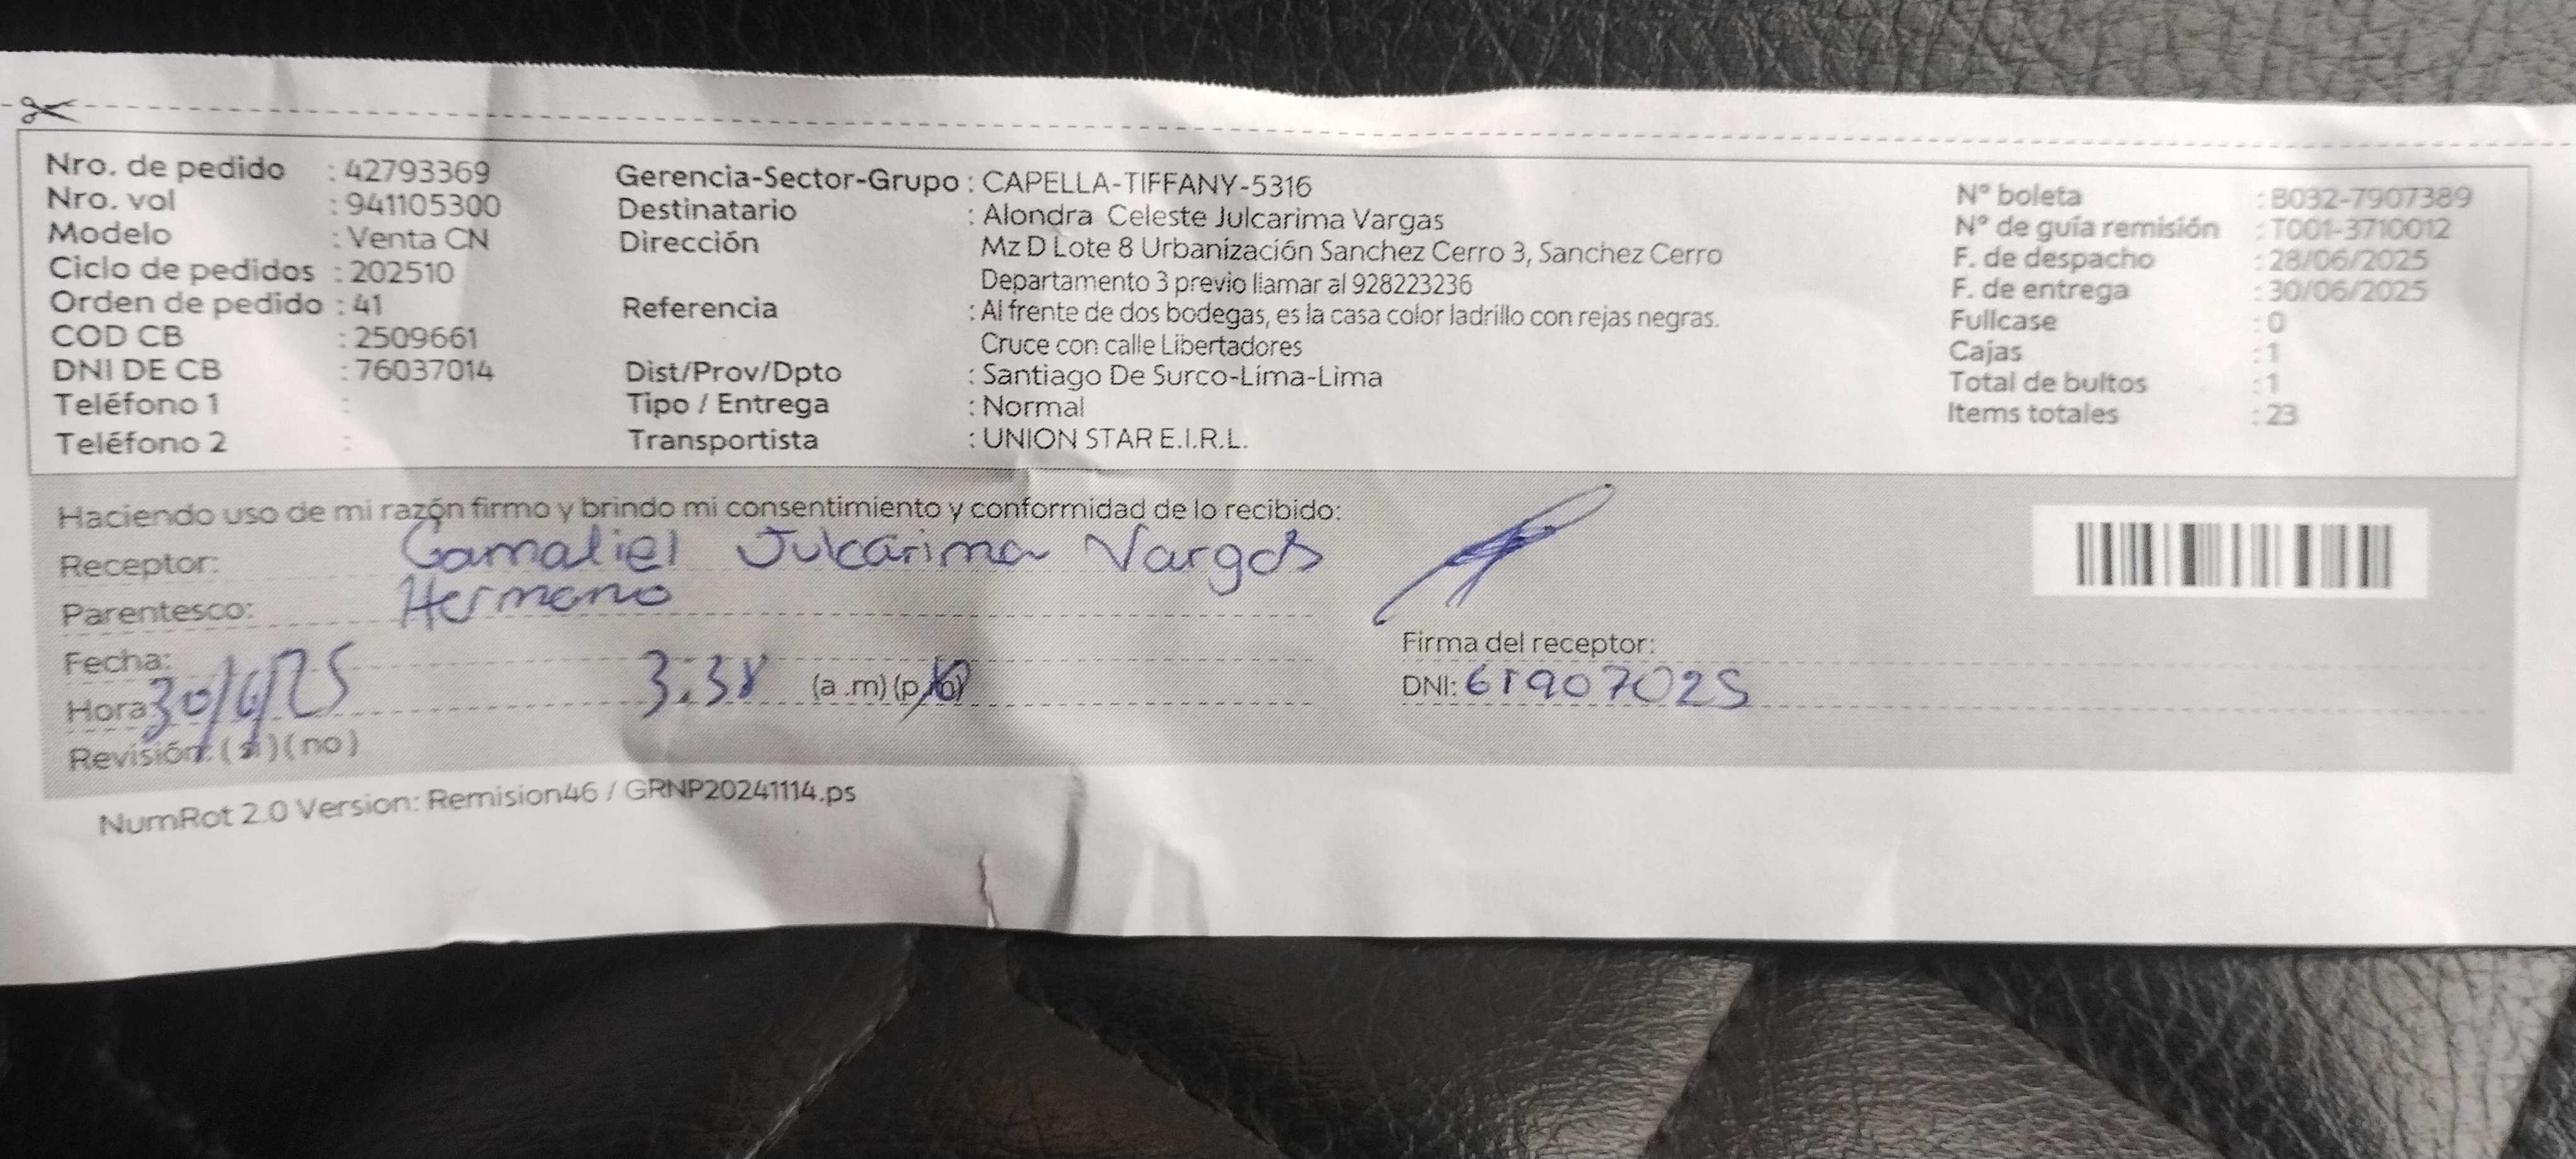 Nro. de pedido : 42793369
Nro. vol : 941105300
Modelo : Venta CN
Ciclo de pedidos : 202510
Orden de pedido : 41
COD CB : 2509661
DNI DE CB : 76037014
Teléfono 1 :
Teléfono 2 :
Gerencia-Sector-Grupo : CAPELLA-TIFFANY-5316
Destinatario : Alondra Celeste Julcarima Vargas
Dirección Mz D Lote 8 Urbanización Sanchez Cerro 3, Sanchez Cerro
Departamento 3 previo llamar al 928223236
Referencia : Al frente de dos bodegas, es la casa color ladrillo con rejas negras.
Cruce con calle Libertadores
Dist/Prov/Dpto : Santiago De Surco-Lima-Lima
Tipo / Entrega : Normal
Transportista : UNION STAR E.I.R.L.
N° boleta : B032-7907389
N° de guía remisión : T001-3710012
F. de despacho : 28/06/2025
F. de entrega : 30/06/2025
Fullcase : 0
Cajas : 1
Total de bultos : 1
Items totales : 23
Haciendo uso de mi razón firmo y brindo mi consentimiento y conformidad de lo recibido:
Receptor: Gamaliel Julcarima Vargas
Parentesco: Hermano
Fecha: 30/6/25
Hora: 3.38 (a.m) (p.m)
Revisión: (si) (no)
Firma del receptor:
DNI: 61907025
NumRot 2.0 Version: Remision46 / GRNP20241114.ps